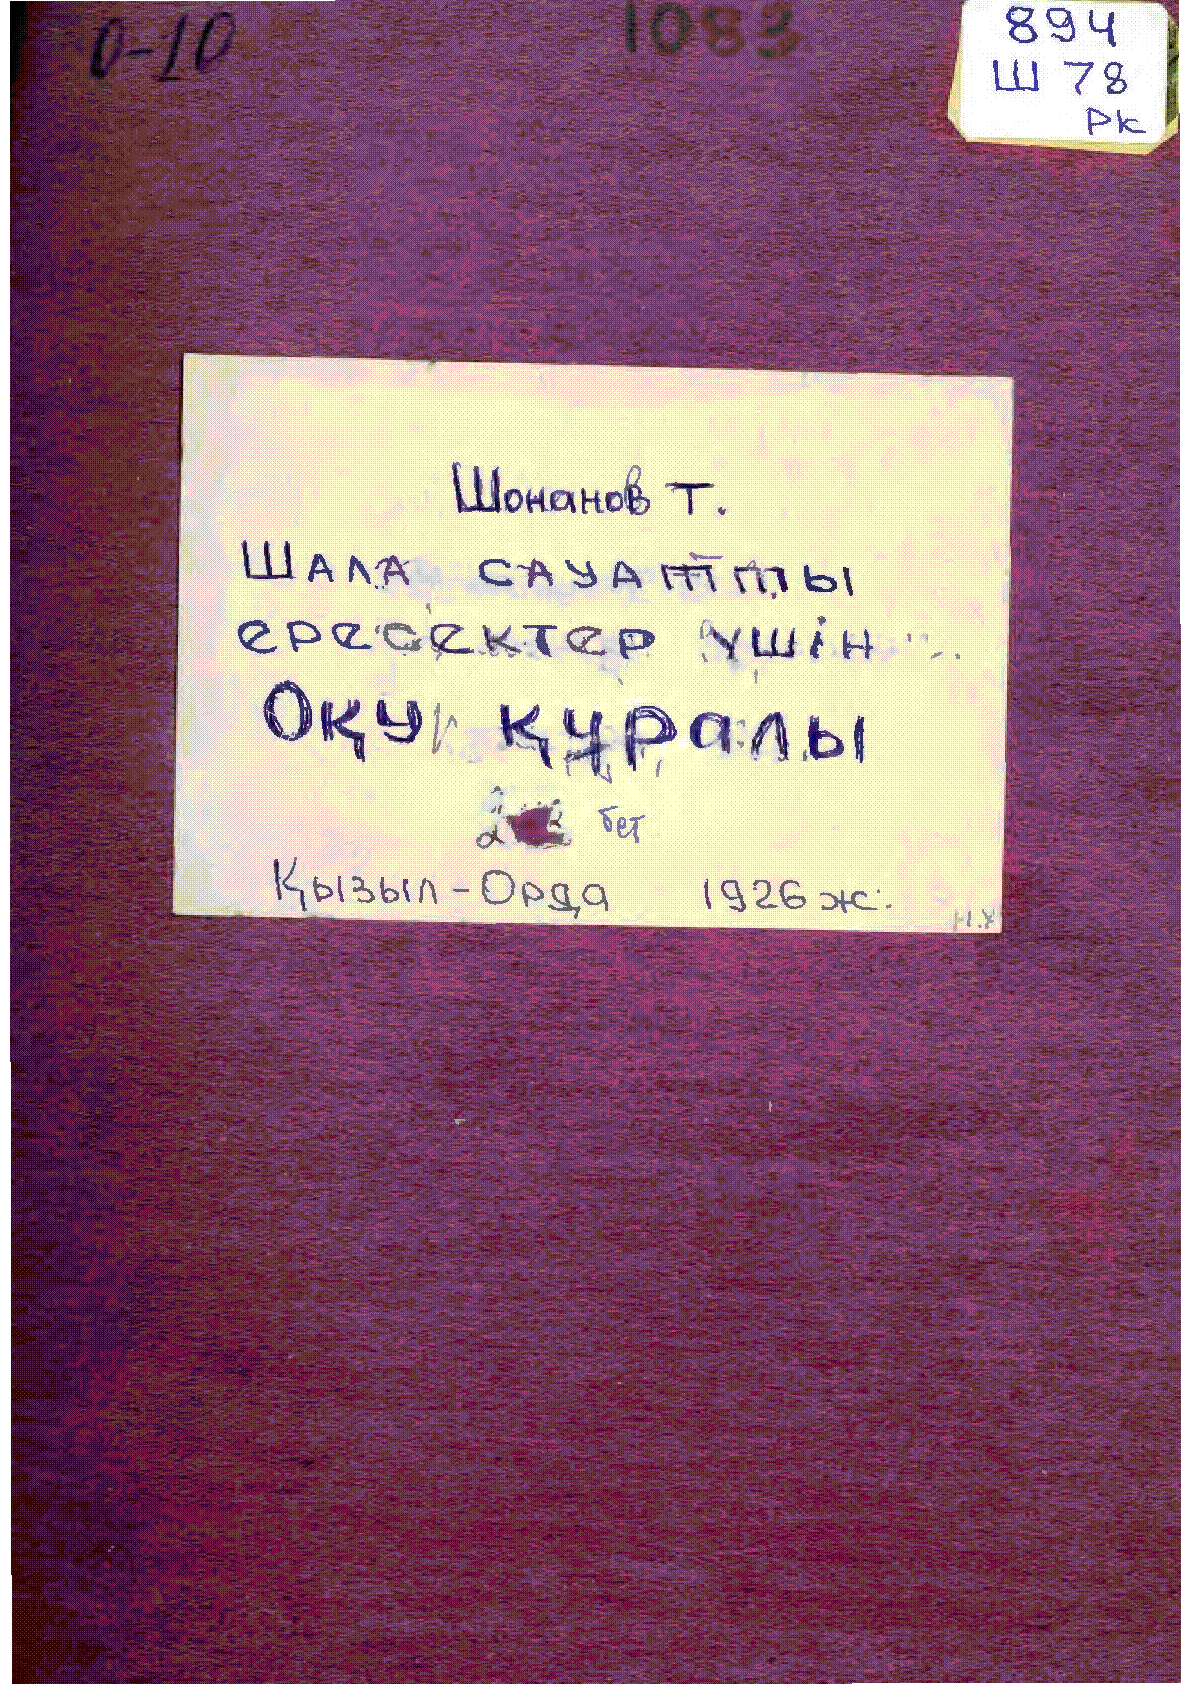 0-10
1083
894
Ш 78
РК
Шонанов Т.
ШАЛА САУАТТЫ
ересектер үшін
Оқу құралы
бет
Қызыл-Орда 1926 ж.